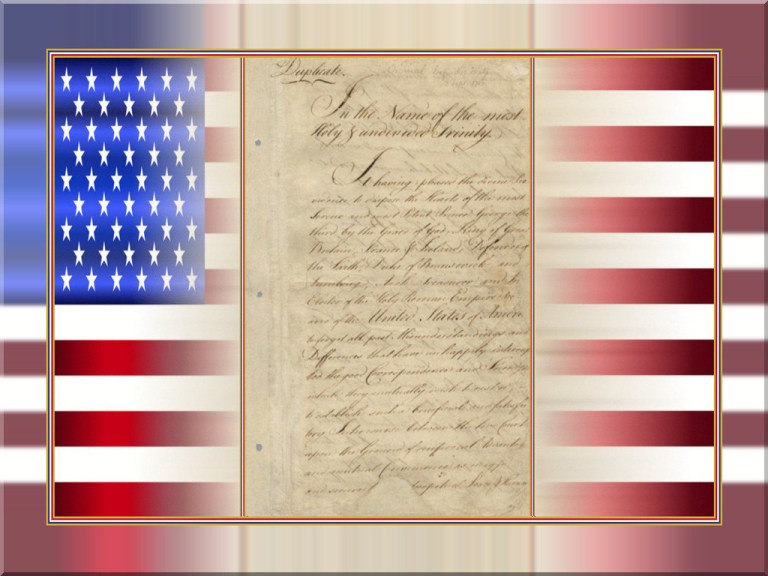 Duplicate.
In the Name of the most
Holy & undivided Trinity.
It having pleased the divine Pro
vidence to dispose the Hearts of the most
Serene and most Potent Prince George the
third, by the Grace of God, King of Great
Britain, France & Ireland, Defender of
the Faith, Duke of Brunswick and
Lunebourg, Arch Treasurer and
Elector of the Holy Roman Empire &
of the United States of Amer
to forget all past Misunderstandings and
Differences that have unhappily interrup
ted the good Correspondence and
which they mutually wish to
to establish such a beneficial and satisfac
tory Intercourse between the two
upon the Ground of reciprocal
and mutual Convenience as may
and secure